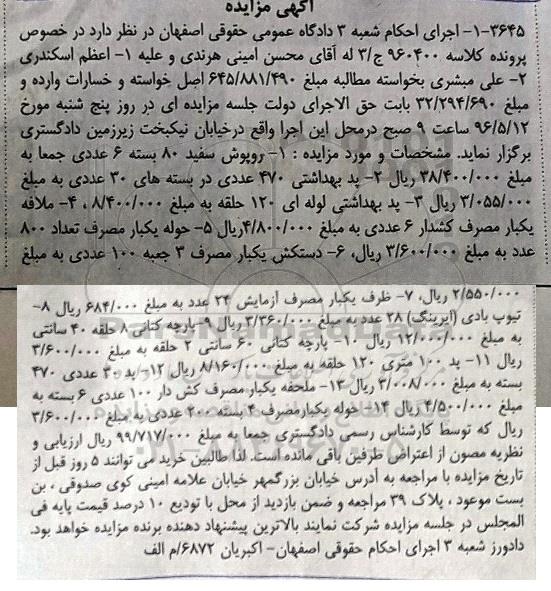 آگهی مزایده
۱-۳۶۴۵- اجرای احکام شعبه ۳ دادگاه عمومی حقوقی اصفهان در نظر دارد در خصوص
پرونده کلاسه ۹۶۰۴۰۰ ج/۳ له آقای محسن امینی هرندی و علیه ۱- اعظم اسکندری
۲- علی مبشری بخواسته مطالبه مبلغ ۶۴۵/۸۸۱/۴۹۰ اصل خواسته و خسارات وارده و
مبلغ ۳۲/۲۹۴/۶۹۰ بابت حق الاجرای دولت جلسه مزایده ای در روز پنج شنبه مورخ
۹۶/۵/۱۲ ساعت ۹ صبح درمحل این اجرا واقع درخیابان نیکبخت زیرزمین دادگستری
برگزار نماید. مشخصات و مورد مزایده : ۱- روپوش سفید ۸۰ بسته ۶ عددی جمعا به
مبلغ ۳۸/۴۰۰/۰۰۰ ریال ۲- پد بهداشتی ۴۷۰ عددی در بسته های ۳۰ عددی به مبلغ
۳/۰۵۵/۰۰۰ ریال ۳- پد بهداشتی لوله ای ۱۲۰ حلقه به مبلغ ۸/۴۰۰/۰۰۰ ، ۴- ملافه
یکبار مصرف کشدار ۶ عددی به مبلغ ۴/۸۰۰/۰۰۰ریال ۵- حوله یکبار مصرف تعداد ۸۰۰
عدد به مبلغ ۳/۶۰۰/۰۰۰ ریال، ۶- دستکش یکبار مصرف ۳ جعبه ۱۰۰ عددی به مبلغ
۲/۵۵۰/۰۰۰ ریال، ۷- ظرف یکبار مصرف آزمایش ۲۴ عدد به مبلغ ۶۸۴/۰۰۰ ریال ۸-
تیوپ بادی (ایررینگ) ۲۸ عدد به مبلغ ۳/۳۶۰/۰۰۰ ریال ۹-پارچه کتانی ۸ حلقه ۴۰ سانتی
به مبلغ ۱۲/۰۰۰/۰۰۰ ریال ۱۰- پارچه کتانی ۶۰ سانتی ۲ حلقه به مبلغ ۳/۶۰۰/۰۰۰
ریال ۱۱- پد ۱۰۰ متری ۱۲۰ حلقه به مبلغ ۸/۱۶۰/۰۰۰ ریال ۱۲-پد ۳۰ عددی ۴۷۰
بسته به مبلغ ۳/۰۰۸/۰۰۰ ریال ۱۳- ملحفه یکبار مصرف کش دار ۱۰۰ عددی ۶ بسته به
مبلغ ۴/۵۰۰/۰۰۰ ریال ۱۴- حوله یکبارمصرف ۴ بسته ۲۰۰ عددی به مبلغ ۳/۶۰۰/۰۰۰
ریال که توسط کارشناس رسمی دادگستری جمعا به مبلغ ۹۹/۷۱۷/۰۰۰ ریال ارزیابی و
نظریه مصون از اعتراض طرفین باقی مانده است. لذا طالبین خرید می توانند ۵ روز قبل از
تاریخ مزایده با مراجعه به آدرس خیابان بزرگمهر خیابان علامه امینی کوی صدوقی ، بن
بست موعود ، پلاک ۳۹ مراجعه و ضمن بازدید از محل با تودیع ۱۰ درصد قیمت پایه فی
المجلس در جلسه مزایده شرکت نمایند بالاترین پیشنهاد دهنده برنده مزایده خواهد بود.
دادورز شعبه ۳ اجرای احکام حقوقی اصفهان- اکبریان ۶۸۷۲/م الف